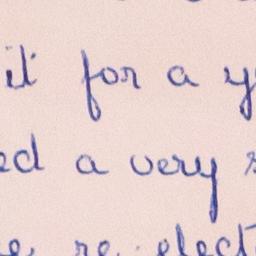 it for a y
ed a very s
re elect